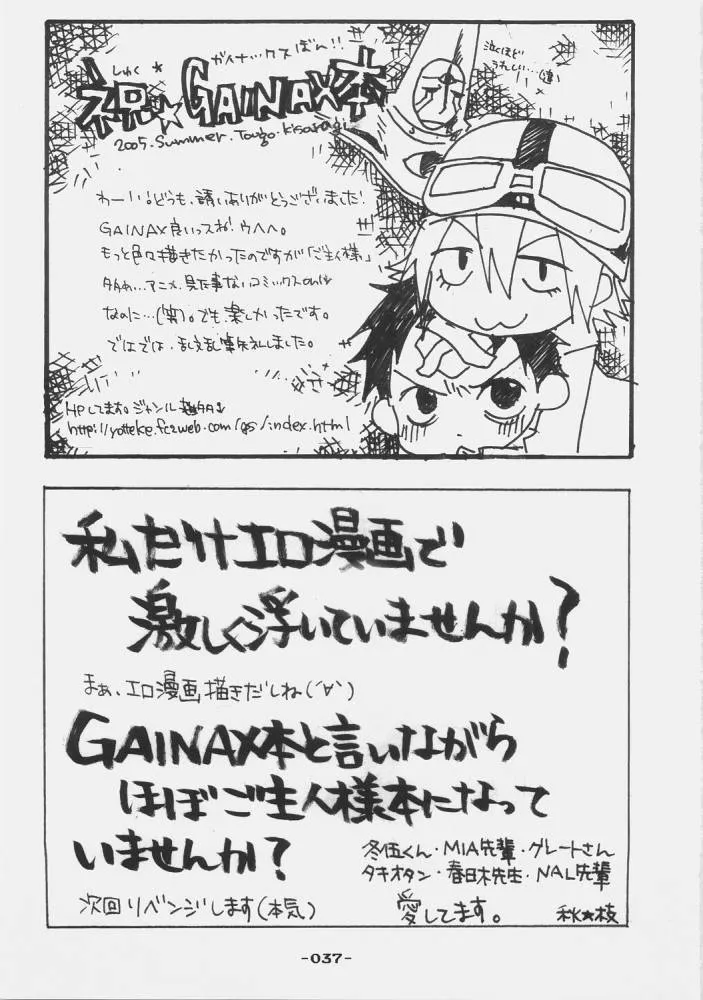 しゅく★
ガイナックスぼん!!
祝☆GAINAX本
2005.Summer.Tougo.Kisaragi
泣くほど
うれしい…
わーい!どうも、誘いありがとうございました!
GAINAX良いっスね!ウヘヘ。
もっと色々描きたかったのですが「ご主人様」
アニメ見た事ないコミックスonly
なのに…(笑)。でも楽しかったです。
ではでは、乱文乱筆失礼しました。
HPしてます。ジャンル
http://yotteke.fc2web.com/gs/index.html
私だけエロ漫画で
激しく浮いていませんか?
まぁ、エロ漫画描きだしね(´∀`)
GAINAX本と言いながら
ほぼご主人様本になって
いませんか?
冬伍くん・MIA先輩・グレートさん
タキオタン・春日木先生・NAL先輩
次回リベンジします(本気)
愛してます。
秋★枝
-037-